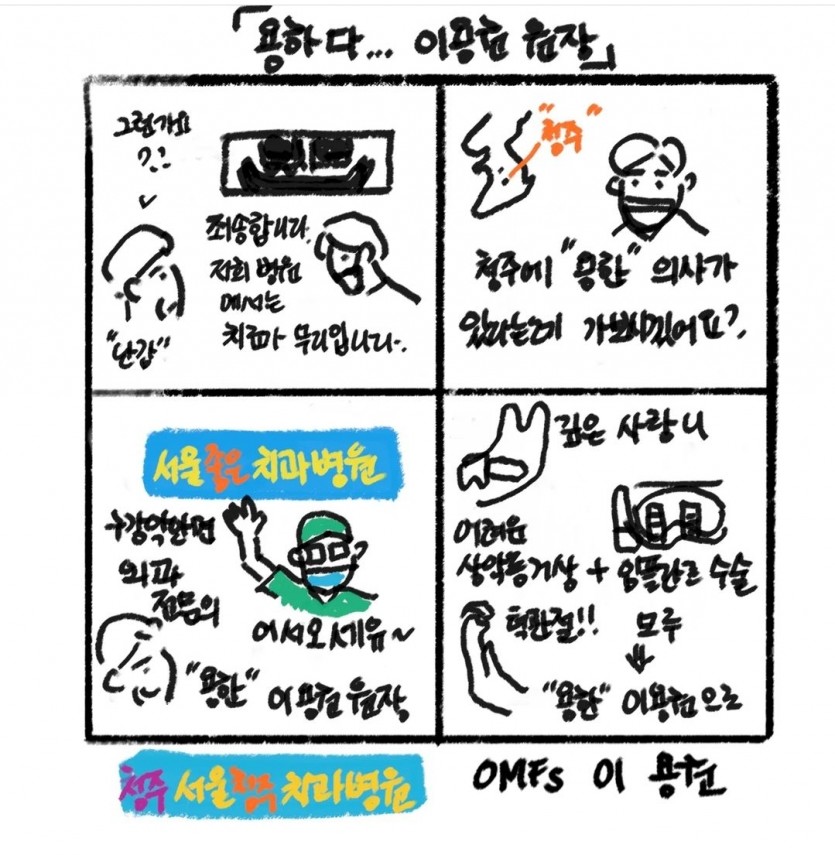 「용하다... 이용권 원장」
그런가요
?.?
죄송합니다.
저희 병원
에서는
치료가 무리입니다.
"난감"
"청주"
청주에 "용한" 의사가
있다는데 가보시겠어요?
서울좋은치과병원
구강악안면
외과
전문의
어서오세유~
"용한" 이용권 원장
깊은 사랑니
어려운
상악동거상 + 임플란트 수술
턱관절!! 모두
"용한" 이용권으로
청주 서울좋은치과병원
OMFs 이용권